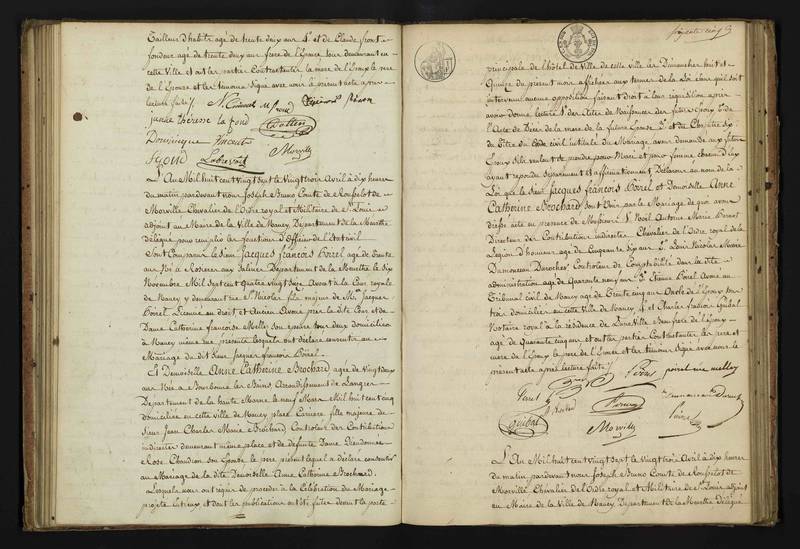 Tailleur d'habits agé de trente deux ans 4° et de Claude
fondeur agé de trente deux ans frere de l'Epouse tous demeurant en
cette Ville et ont les parties Contractantes la mere de l'Epoux le pere
de l'Epouse et les temoins signé avec nous le present acte après
lecture faite
jeanne thérese la fond
Dominique Vincent
Morville
L'An Mil huit cent vingt sept le Vingt trois Avril à dix heures
du matin pardevant nous Joseph Bruno Comte de Rouffelot de
Morville Chevalier de l'Ordre royal et Militaire de St Louis
adjoint au Maire de la Ville de Nancy Département de la Meurthe
délégué pour remplir les fonctions d'Officier de l'Etat civil
Sont Comparus le Sieur Jacques françois Poirel agé de trente
ans Né à Rosieres aux Salines Département de la Meurthe le Six
Novembre Mil sept cent quatre vingt seize Avocat à la Cour royale
de Nancy y demeurant rue St Nicolas fils majeur de Mr. Jacques
Poirel Licencié en droit et Ancien Avoué près la dite Cour et de
Dame Catherine françoise Mellez son epouse tous deux domiciliés
à Nancy même rue presents lesquels ont déclaré consentir au
Mariage du dit Sieur Jacques françois Poirel.
Et Demoiselle Anne Catherine Brochard agée de Vingt deux
ans Née à Bourbonne les Bains, Arrondissement de Langres
Département de la haute Marne le neuf Mars Mil huit cent cinq
domiciliée en cette ville de Nancy place Carriere fille majeure de
Sieur Jean Charles Marie Brochard Controleur des Contributions
indirectes demeurant même place et de defunte Dame Dieudonnée
Rose Chaudron son Epouse le pere present lequel a déclaré consentir
au Mariage de la dite Demoiselle Anne Catherine Brochard.
Lesquels nous ont requis de proceder à la Célébration du Mariage
projeté entr'eux et dont les publications ont été faites devant la porte
principale de l'hôtel de Ville de cette ville les Dimanches huit et
Quinze du présent mois affichées aux termes de la Loi sans qu'il soit
intervenu aucune opposition faisant droit à leur réquisition après
avoir donné lecture 1° des Actes de Naissances des futurs Epoux 2° de
l'Acte de Décès de la mere de la future Epouse 3° et du Chapitre six
du Titre du Code civil intitulé du Mariage avons demandé aux futurs
Epoux s'ils veulent se prendre pour Mari et pour femme chacun d'eux
ayant repondu séparément et affirmativement Déclarons au nom de la
Loi que le Sieur Jacques françois Poirel et Demoiselle Anne
Catherine Brochard sont Unis par le Mariage de quoi avons
dressé acte en presence de Messieurs 1° Noël Antoine Marie
Directeur des Contributions indirectes Chevalier de l'Ordre royal de la
Legion d'honneur agé de Cinquante Six ans 2° Louis Nicolas Marie
Dumonceau Controleur de Comptabilité dans la dite
administration agé de Quarante neuf ans 3° Etienne Poirel Avoué au
Tribunal civil de Nancy agé de Trente cinq ans Oncle de l'Epoux tous
trois domiciliés en cette Ville de Nancy, 4° et Charles françois Guibal
Notaire royal à la résidence de Luneville Beaufrere de l'Epoux
agé de Quarante cinq ans et ont les parties Contractantes les pere et
mere de l'Epoux le pere de l'Epouse et les témoins signé avec nous le
present acte après lecture faite
Poirel poirel née mellez
Guibal
Morville
L'An Mil huit cent vingt sept le Vingt trois Avril à dix heures
du matin, pardevant nous Joseph Bruno Comte de Rouffelot de
Morville Chevalier de l'Ordre royal et Militaire de St Louis adjoint
au Maire de la Ville de Nancy Département de la Meurthe délégué